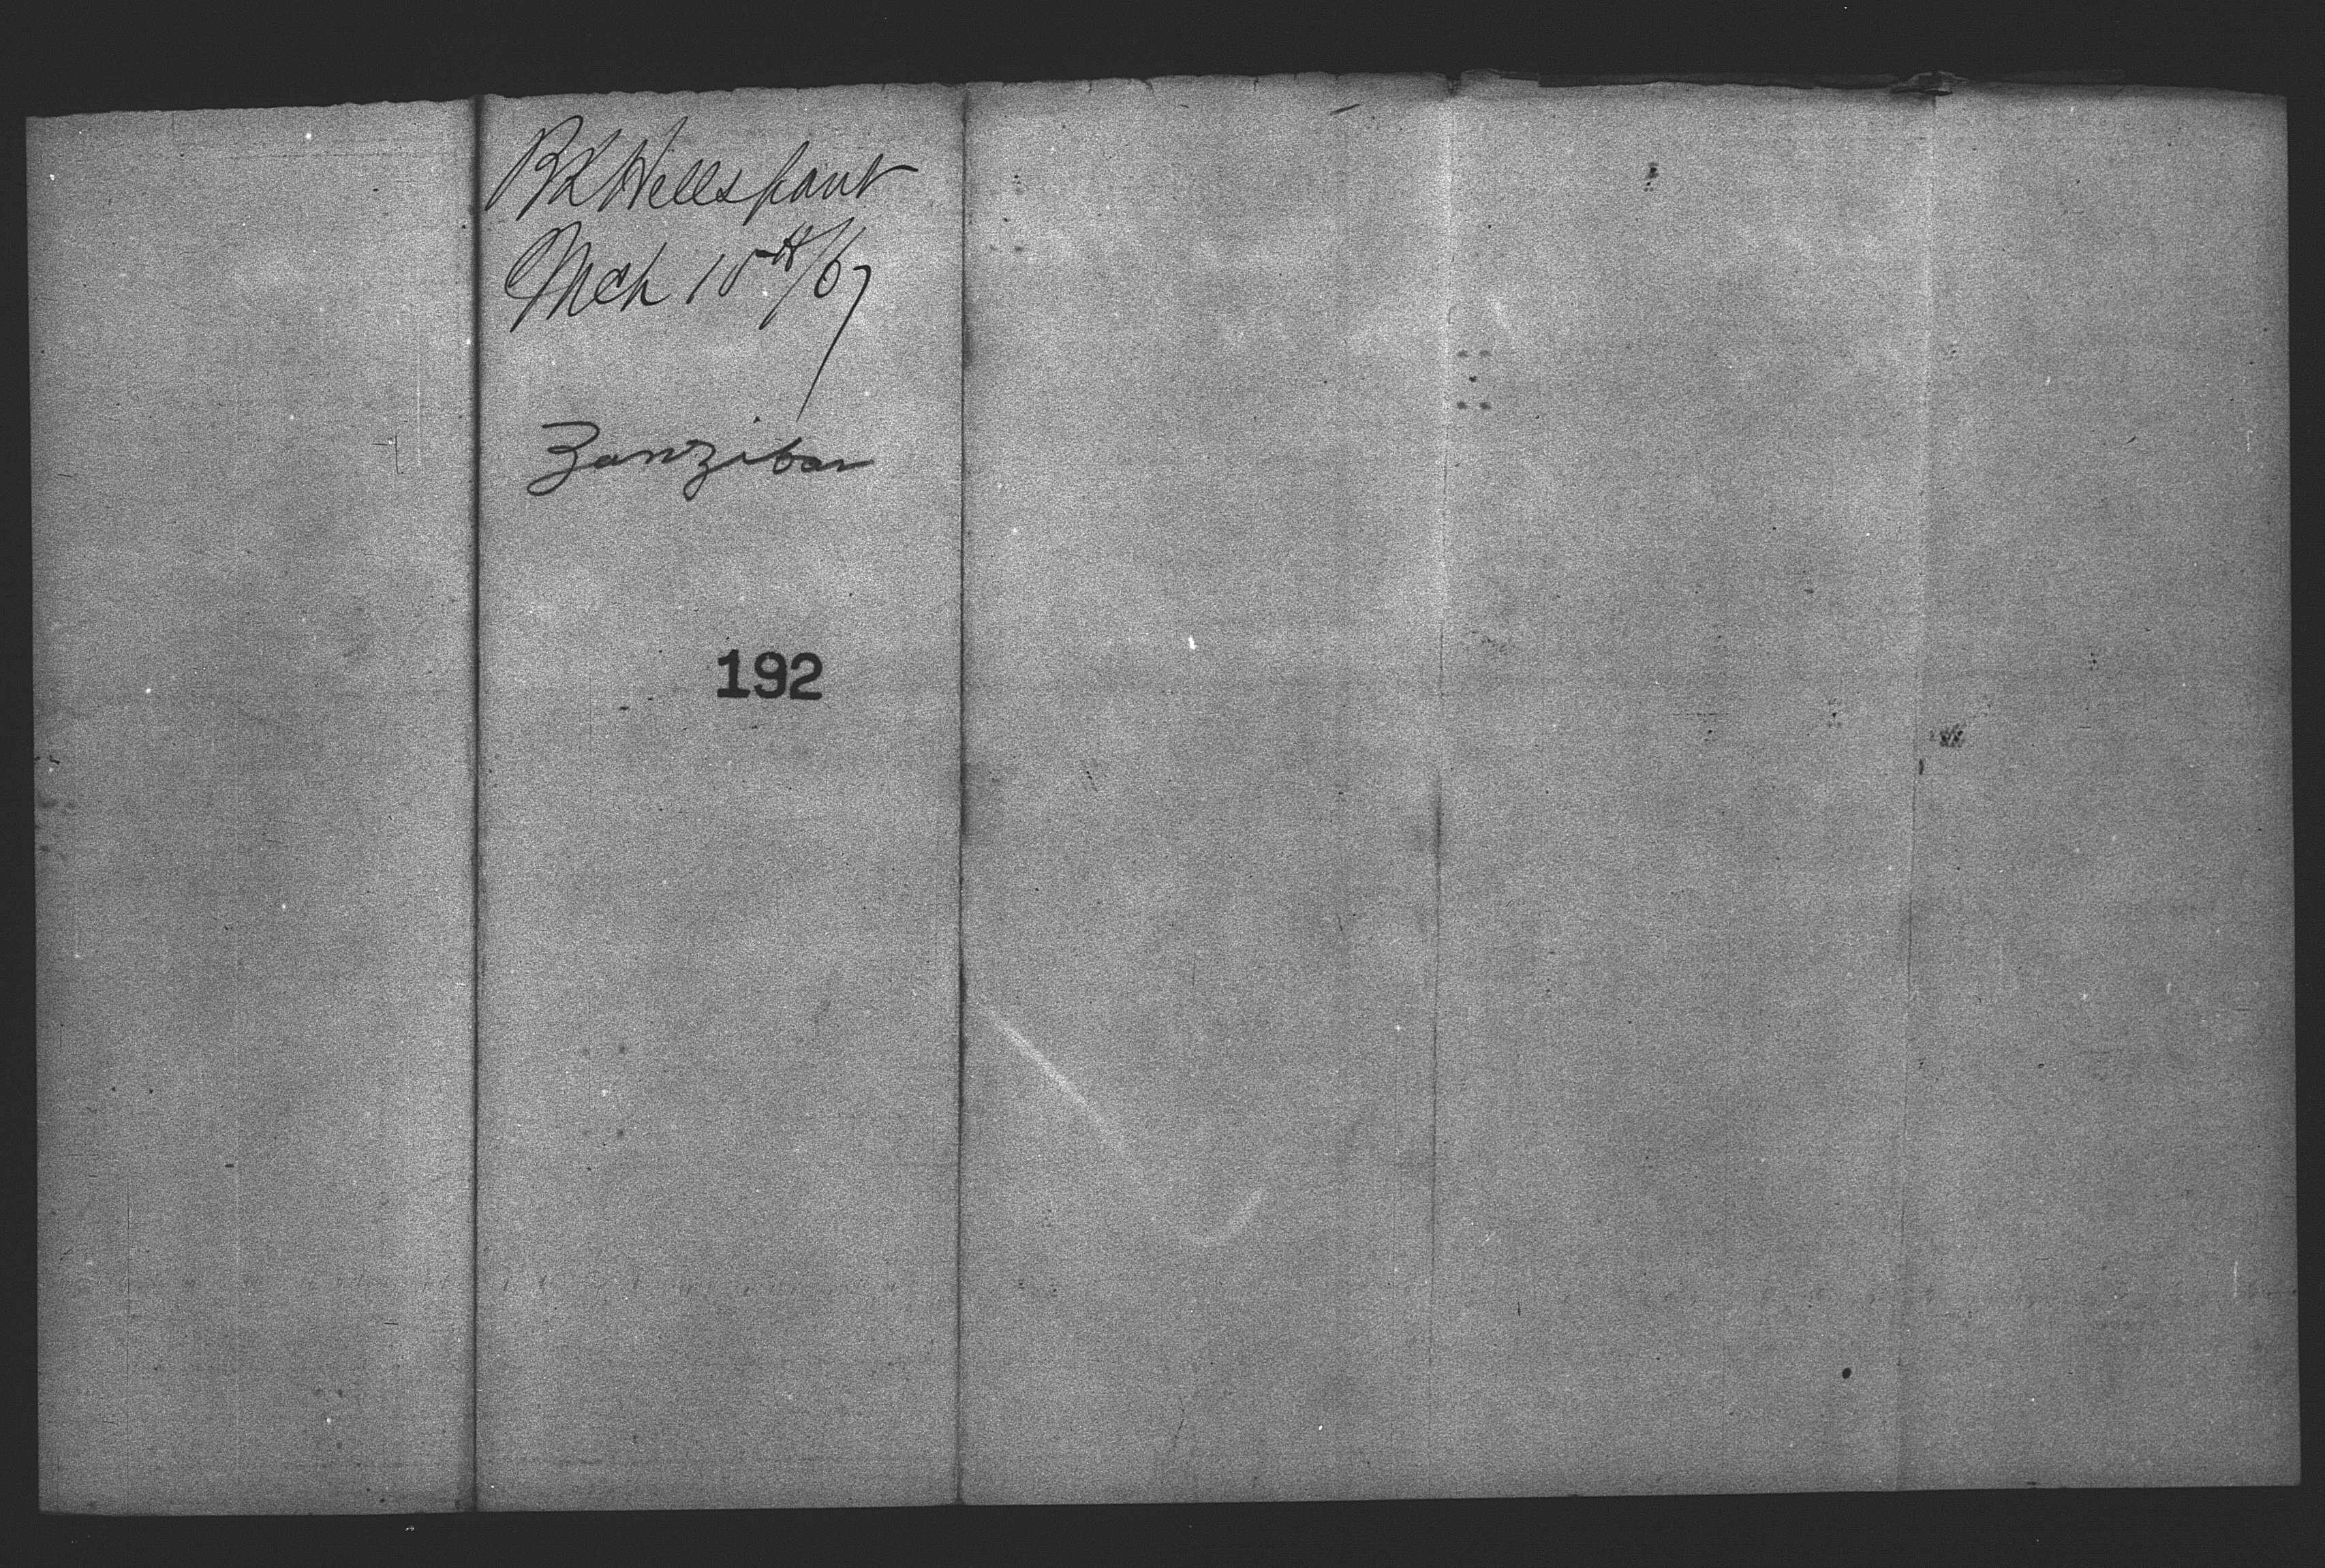 Bk Hellespont
Mch 10th/67
Zanzibar
192